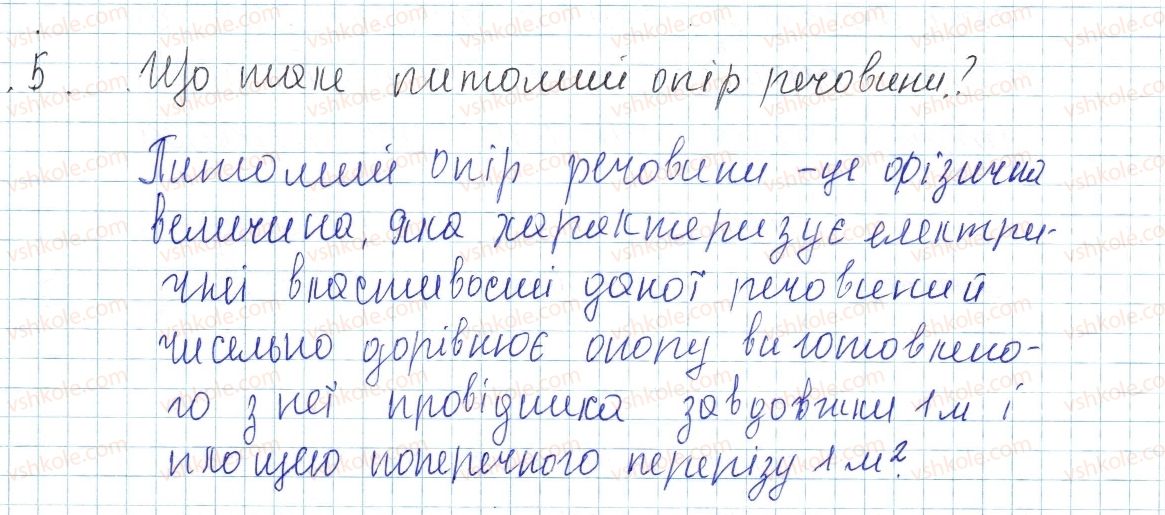 5. Що таке питомий опір речовини?
Питомий опір речовини - це фізична
величина, яка характеризує електри-
чні властивості даної речовини й
чисельно дорівнює опору виготовлено-
го з неї провідника завдовжки 1 м і
площею поперечного перерізу 1 м².